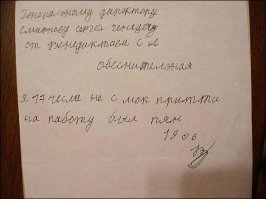 Генеральному директору
Смирнову Сергей Генедеча
от Бенедактова С Л
обеснительная
Я 17 числа не с мок притти
на работу был пян
19 06